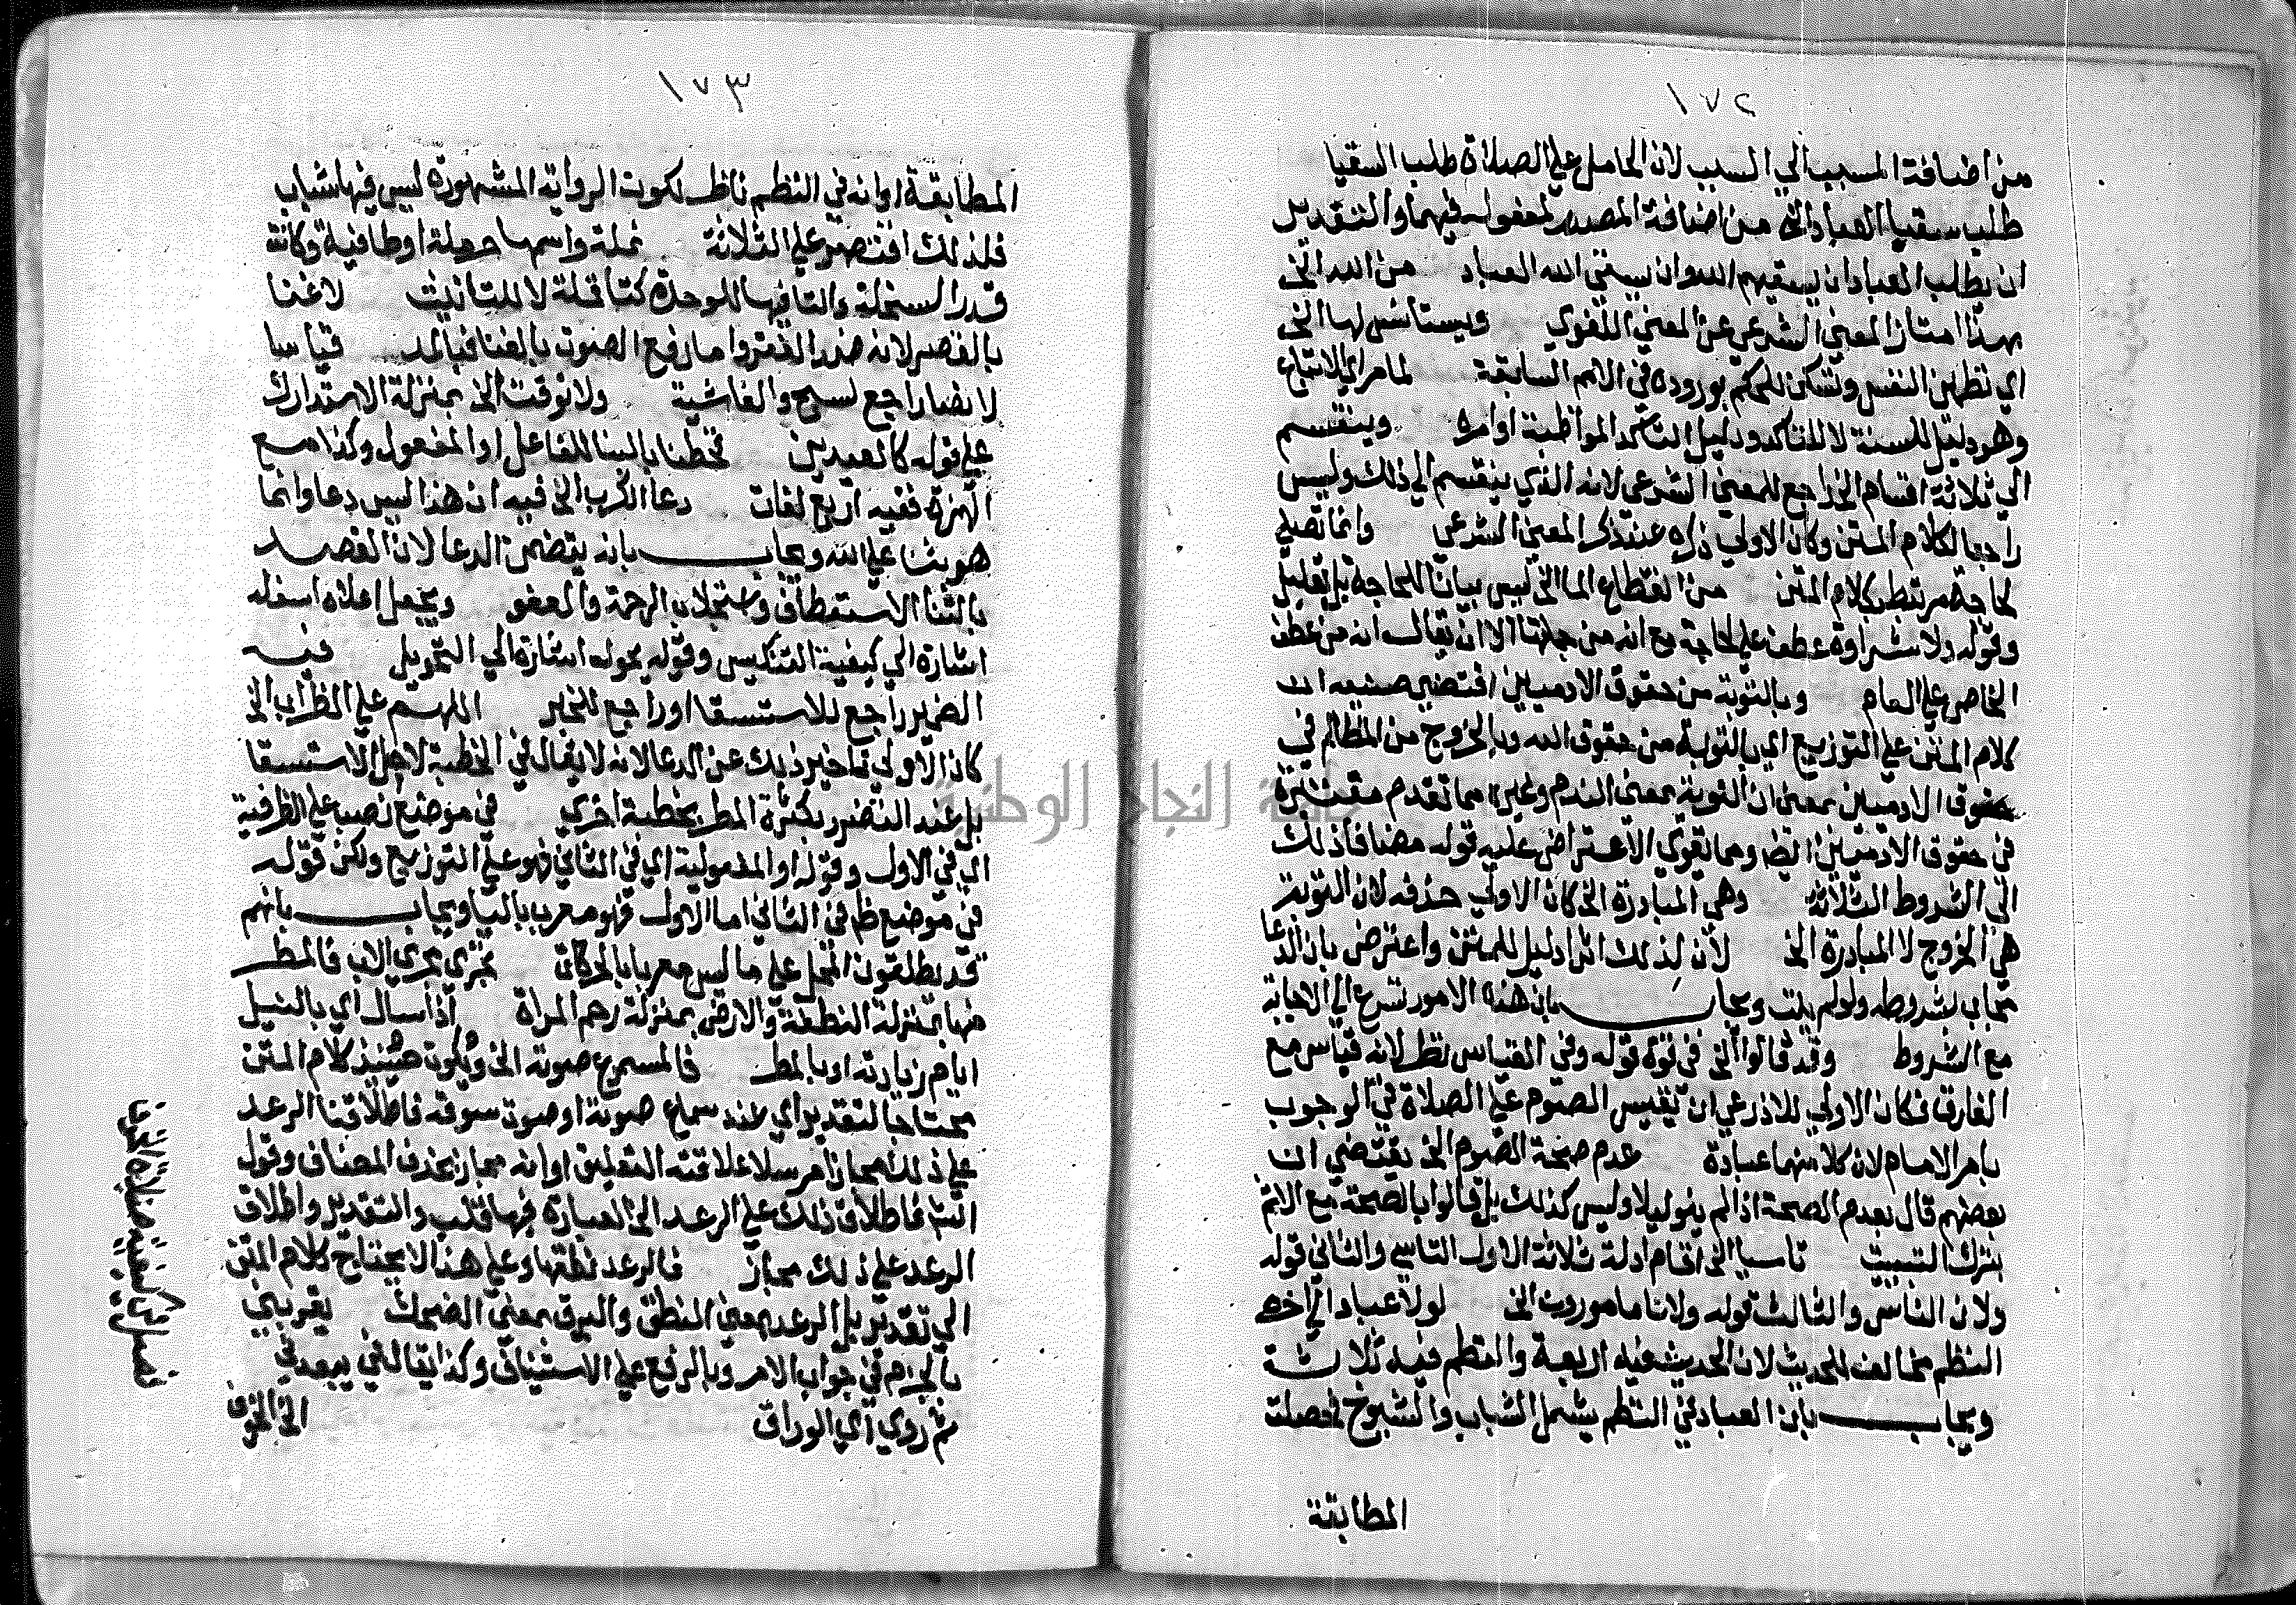 ١٧٢
من اضافة المسبب الي السبب لان الحامل علي الصلاة طلب السقيا
طلب سقيا العباد الخ من اضافة المصدر لمفعوله فيهما والتقدير
ان يطلب العباد ان يسقيهم الله وان يسقي الله العباد من الله الخ
بهذا امتاز المعني الشرعي عن المعني اللغوي ويستانس لها الخ
اي تطمئن النفس وتسكن للحكم بوروده في الامم السابقة لما مر اي الاتباع
وهو دليل للسنة لا للتاكد ودليل التاكد المواظبة اوامره وينقسم
الي ثلاثة اقسام الخ راجع للمعني الشرعي لانه الذي ينقسم الي ذلك وليس
راجعا لكلام المتن وكان الاولي ذكره عند ذكر المعني الشرعي وانما تصلي
لحاجة مرتبط بكلام المتن من انقطاع الما الخ ليس بيانا للحاجة بل تعليل
وقوله ولاستزادة عطف علي لحاجة مع انه من جملتها الا ان يقال انه من عطف
الخاص علي العام وبالتوبة من حقوق الادميين اقتضي صنيعه ان
كلام المتن علي التوزيع اي بالتوبة من حقوق الله وبالخروج من المظالم في
حقوق الادميين بمعني ان التوبة بمعني الندم وغيره مما تقدم معتبرة
في حقوق الادميين ايضا ومما يقوي الاعتراض عليه قوله مضافا ذلك
الي الشروط الثلاثة وهي المبادرة الخ كان الاولي حذفه لان التوبة
هي الخروج لا المبادرة الخ لان لذلك اثرا دليل للمتن واعترض بان الدعا
مجاب بشروطه ولو لم يلت ويجاب بان هذه الامور تسرع الي الاجابة
مع الشروط وقد قالوا الخ في قوة قوله وفي القياس نظر لانه قياس مع
الفارق فكان الاولي للاذرعي ان يقيس الصوم علي الصلاة في الوجوب
بامر الامام لان كلا منهما عبادة عدم صحة الصوم الخ يقتضي ان
بعضهم قال بعدم الصحة اذا لم ينو ليلا وليس كذلك بل قالوا بالصحة مع الاثم
بترك التبييت تاسيا الخ اقام ادلة ثلاثة الاول التاسي والثاني قوله
ولان الناس والثالث قوله ولانا مامورون الخ لولا عباد الي اخره
النظم مخالف للحديث لان الحديث فيه اربعة والنظم فيه ثلاثة
ويجاب بان العباد في النظم يشمل الشباب والشيوخ فحصلت
المطابقة
١٧٣
المطابقة او انه في النظم ناظر لكون الرواية المشهورة ليس فيها شباب
فلذلك اقتصر علي الثلاثة نملة واسمها حرملة او طافية وكانت
قدر السخلة والتا فيها للوحدة كتا قملة لا للتانيث لا غنا
بالقصر لانه ضد الفقر واما رفع الصوت بالغنا فبالمد قياسا
لا نصا راجع لسبح والغاشية ولا توقت الخ بمنزلة الاستدراك
علي قوله كالعيدين قحطنا بالبنا للفاعل او المفعول وكذا مع
الهمزة ففيه اربع لغات دعا الكرب الخ فيه ان هذا ليس دعا وانما
هو ثنا علي الله ويجاب بانه يتضمن الدعا لان القصد
بالثنا الاستعطاف واستجلاب الرحمة والعفو ويجعل اعلاه اسفله
اشارة الي كيفية التنكيس وقوله يحول اشارة الي التحويل فيه
الضمير راجع للاستسقا او راجع للخبر اللهم علي الظراب الخ
كان الاولي تاخير ذلك عن الدعا لانه لا يقال في الخطبة لاجل الاستسقا
بل عند التضرر بكثرة المطر بخطبة اخري في موضع نصب علي الظرفية
اي في الاول وقوله او المفعولية اي في الثاني فهو علي التوزيع ولكن قوله
في موضع ظم في الثاني اما الاول فهو معرب باليا ويجاب بانهم
قد يطلقون المحل علي ما ليس معربا بالحركات تجري مجري الاب فالمطر
فيها بمنزلة النطفة والارض بمنزلة رحم المراة اذا سال اي بالنيل
ايام زيادته او بالمطر فالمسموع صوته الخ ويكون حينئذ كلام المتن
محتاجا لتقدير اي عند سماع صوته او صوت سوقه فاطلاقنا الرعد
علي ذلك مجازا مرسلا علاقته التعليق او انه مجاز بحذف المضاف وقول
الش فاطلاق ذلك علي الرعد الخ العبارة فيها قلب والتقدير واطلاق
الرعد علي ذلك مجاز فالرعد نطقها وعلي هذا لا يحتاج كلام المتن
الي تقدير بل الرعد بمعني النطق والبرق بمعني الضحك يقربني
بالجزم في جواب الامر وبالرفع علي الاستيناف وكذا يقال في يبعدني
ثم روي اي الوراق الخ الخوف
فصل في كيفية صلاة الخوف
جامعة النجاح الوطنية